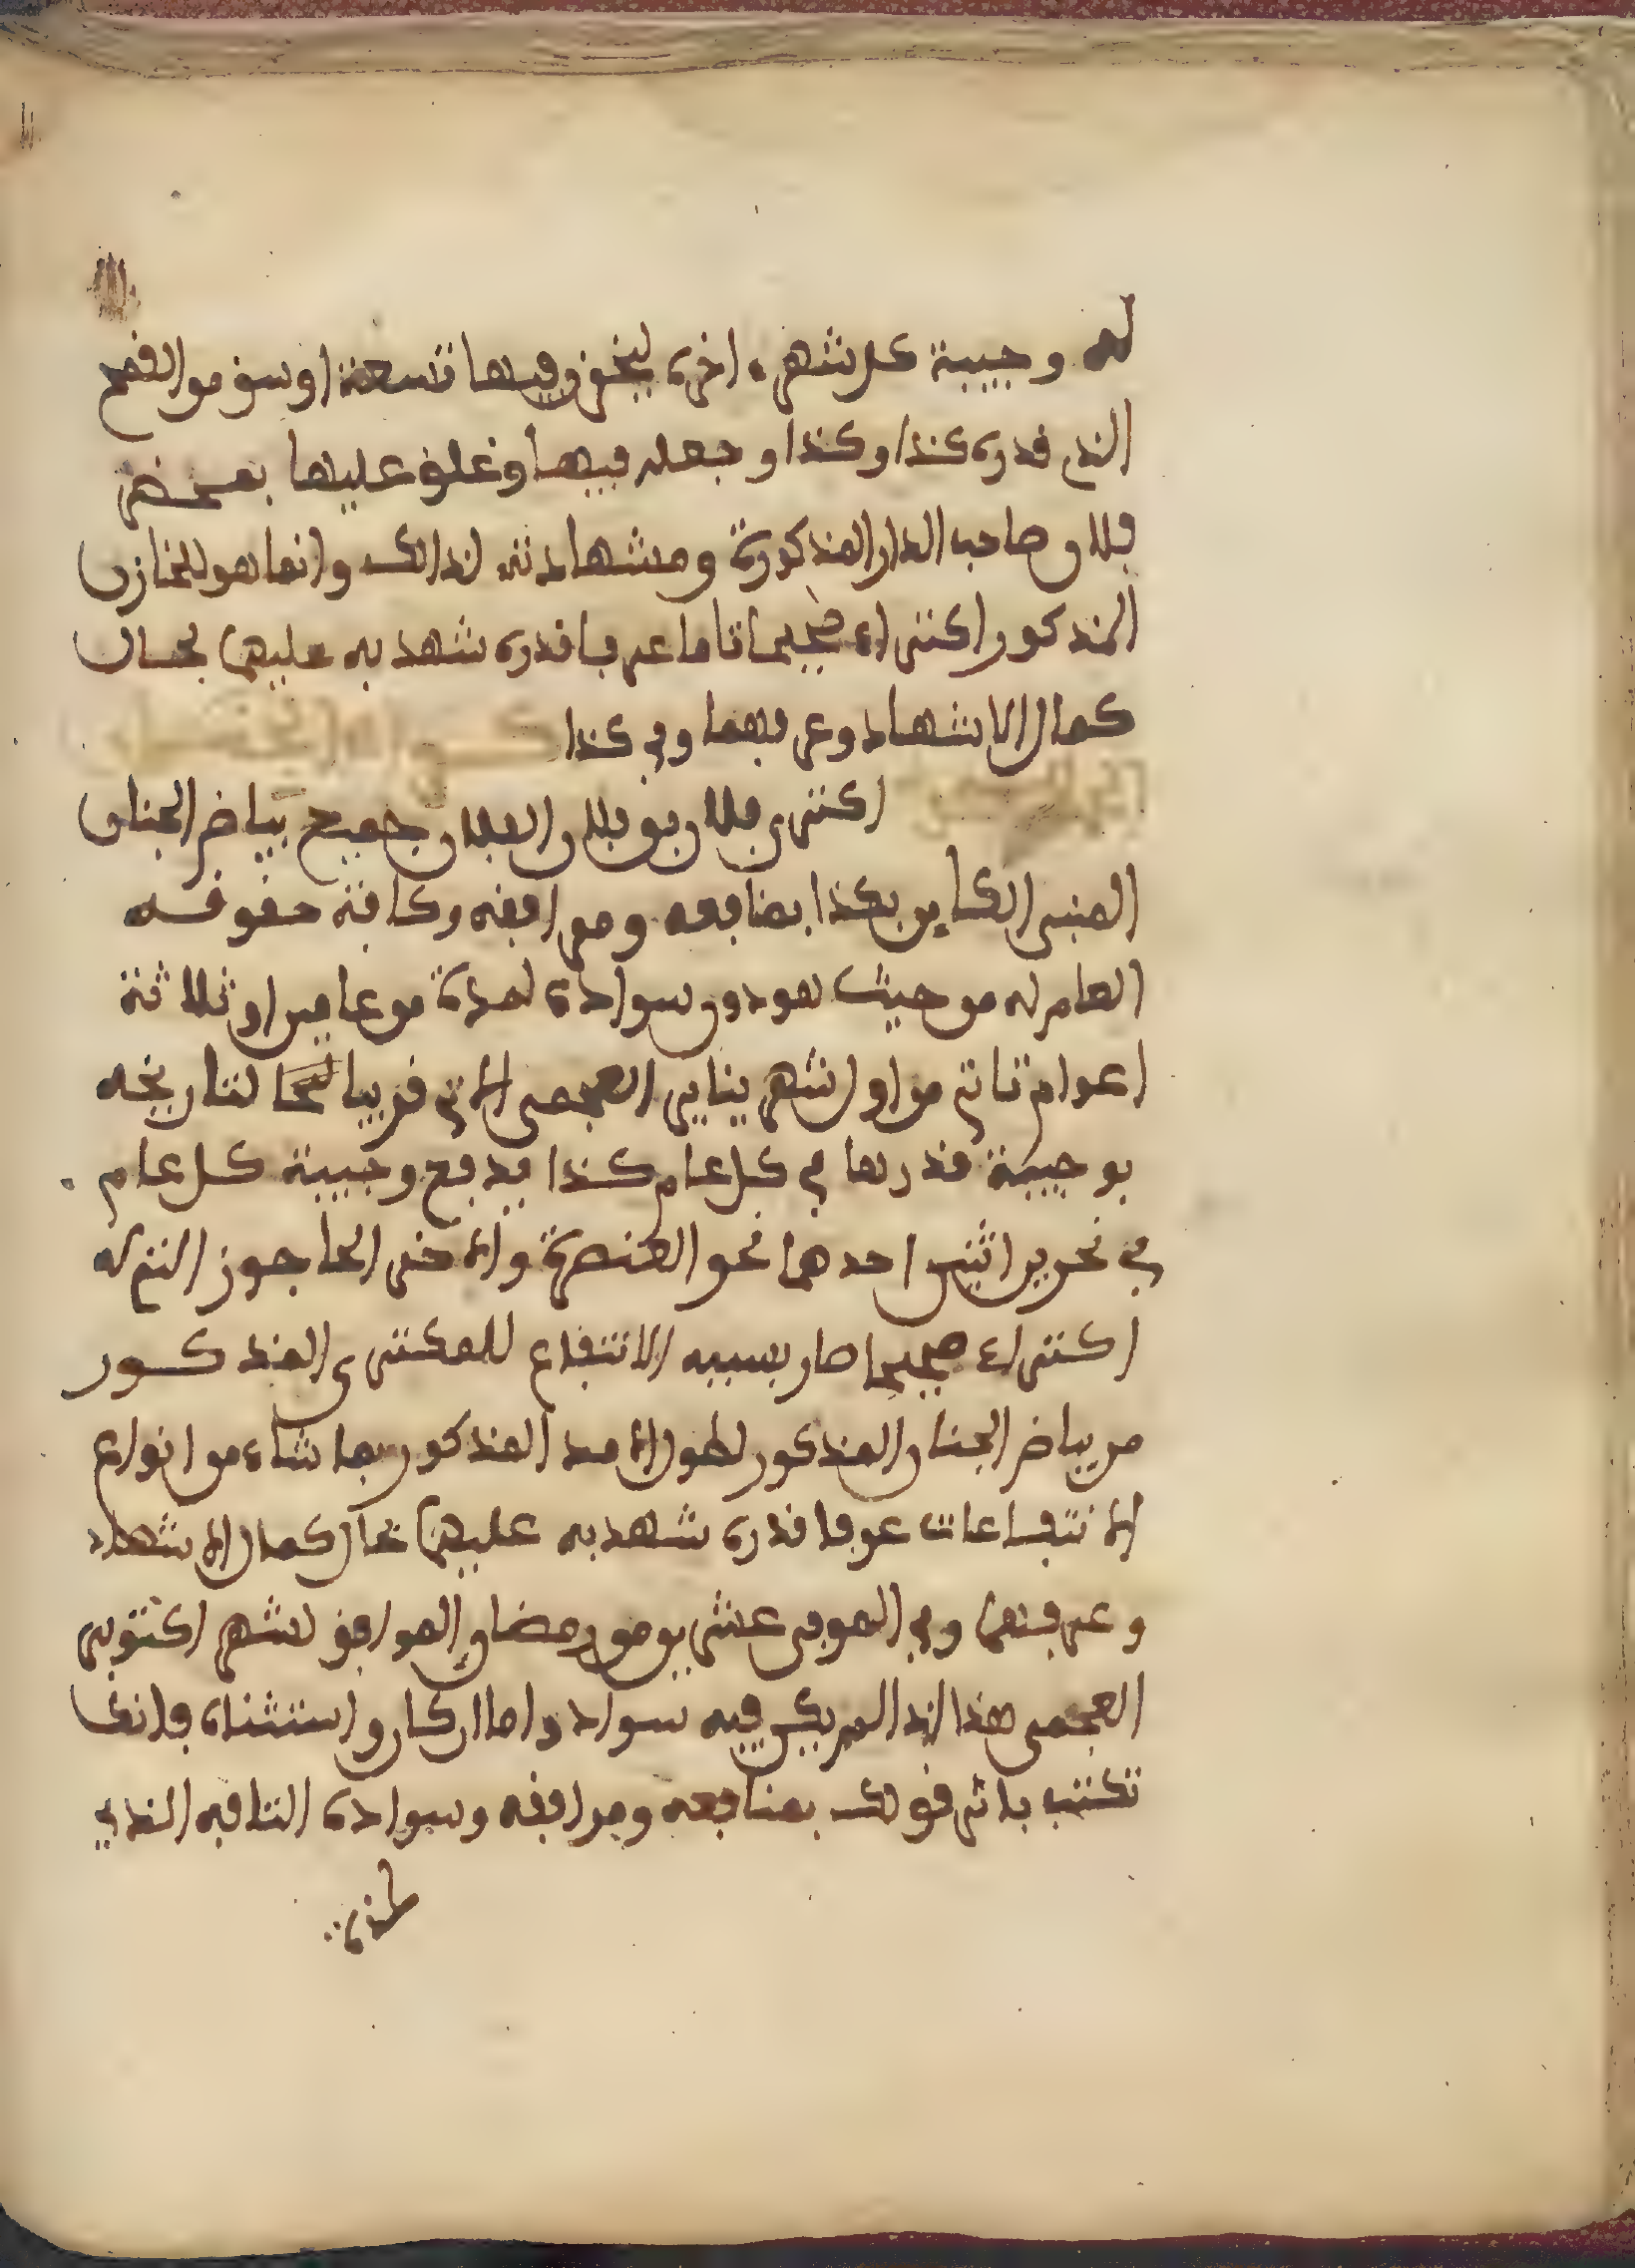 له وجيبة كل شهر اخرى ليخزن فيها تسعة اوسق من القمح
الذي قدره كذا وكذا وجعله فيها وغلق عليها بمحضر
فلان صاحب الدار المذكورة ومشهادته لذالك وانما هو للخازن
المذكور اكتراء صحيحا تاما عرفا قدره شهد به عليهما بحال
كمال الاشهاد وعرفهما وفي كذا
اكترى فلان بن فلان الفلان جميع بياض الجنان
المنسى الكاين بكذا بمنافعه ومرافقه وكافة حقوقه
العام له من حيث هو دون سواده لمدة من عامين او ثلاثة
اعوام تاتي من اول شهر يناير العجمي الاتي قريبا لتاريخه
بوجيبة قدرها في كل عام كذا يدفع وجيبة كل عام
في نحرير اثنين احدهما نحو العنصرة والاخر الحاجوز التزم له
اكتراء صحيحا صار بسببه الانتفاع للمكتري المذكور
من بياض الجنان المذكور لطول الامد المذكور بما شاء من انواع
الانتفاعات عرفا قدره شهد به عليهما بحال كمال الاشهاد
وعرفهما وفي الموفي عشرين من رمضان الموافق لشهر اكتوبر
العجمي هذا اذا لم يكن فيه سواد واما ان كان واستثناه فانك
تكتب باثر قولك بمنافعه ومرافقه وسواده التافه الذي